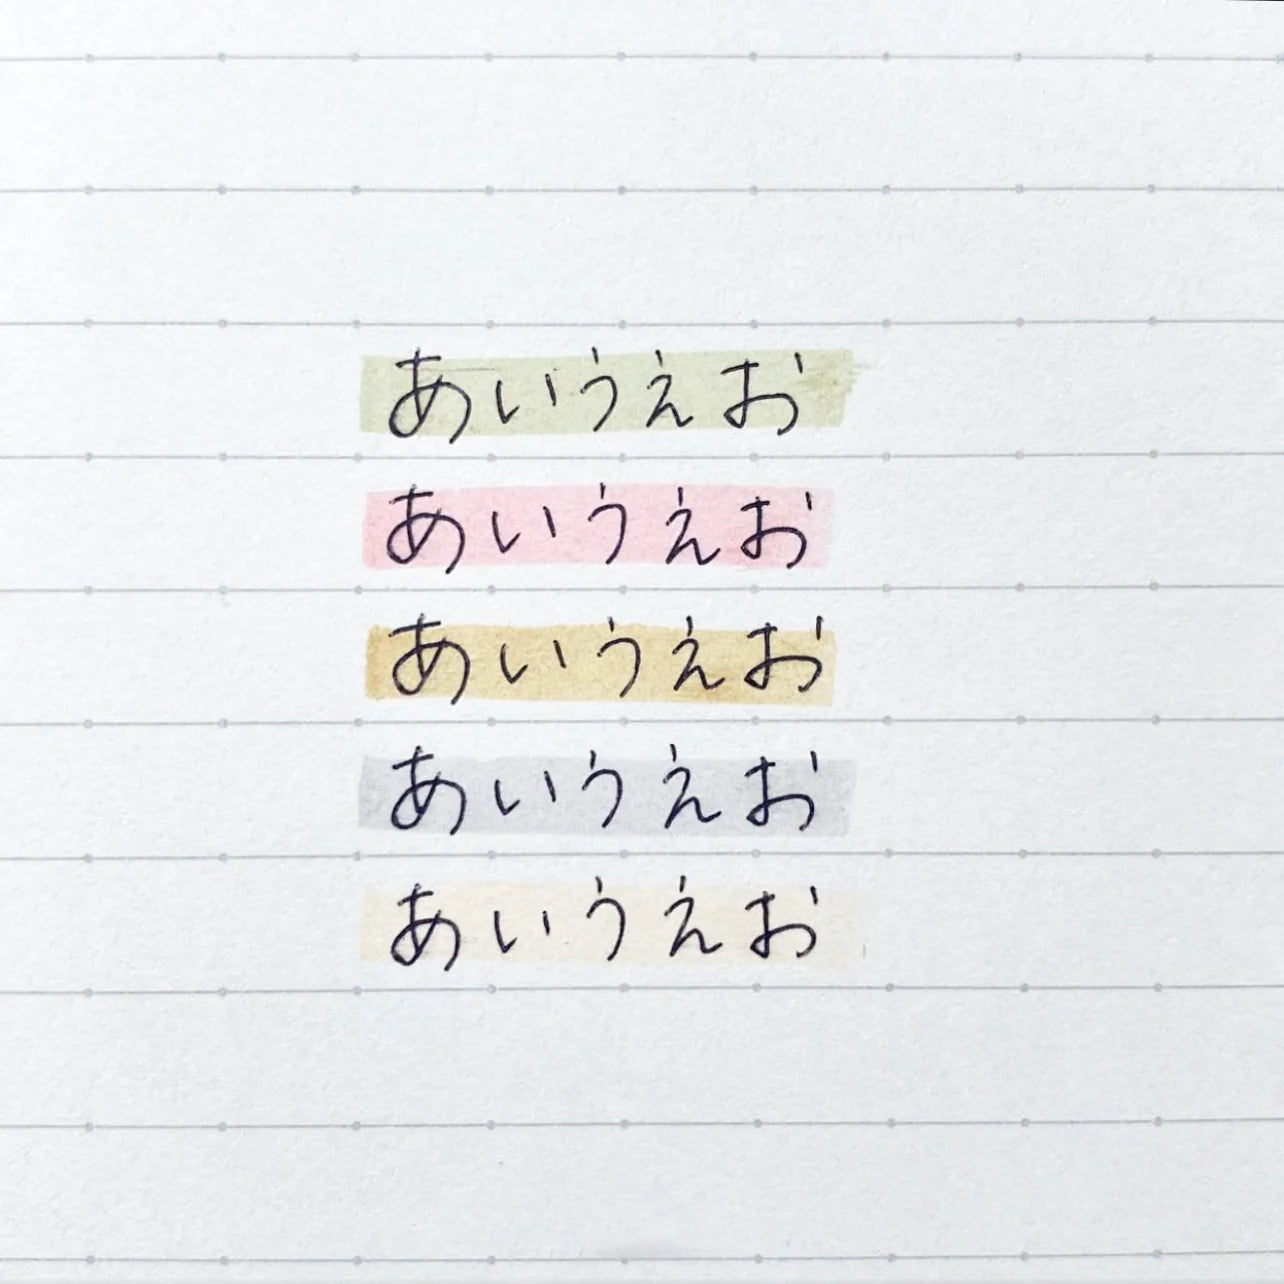 あいうえお
あいうえお
あいうえお
あいうえお
あいうえお